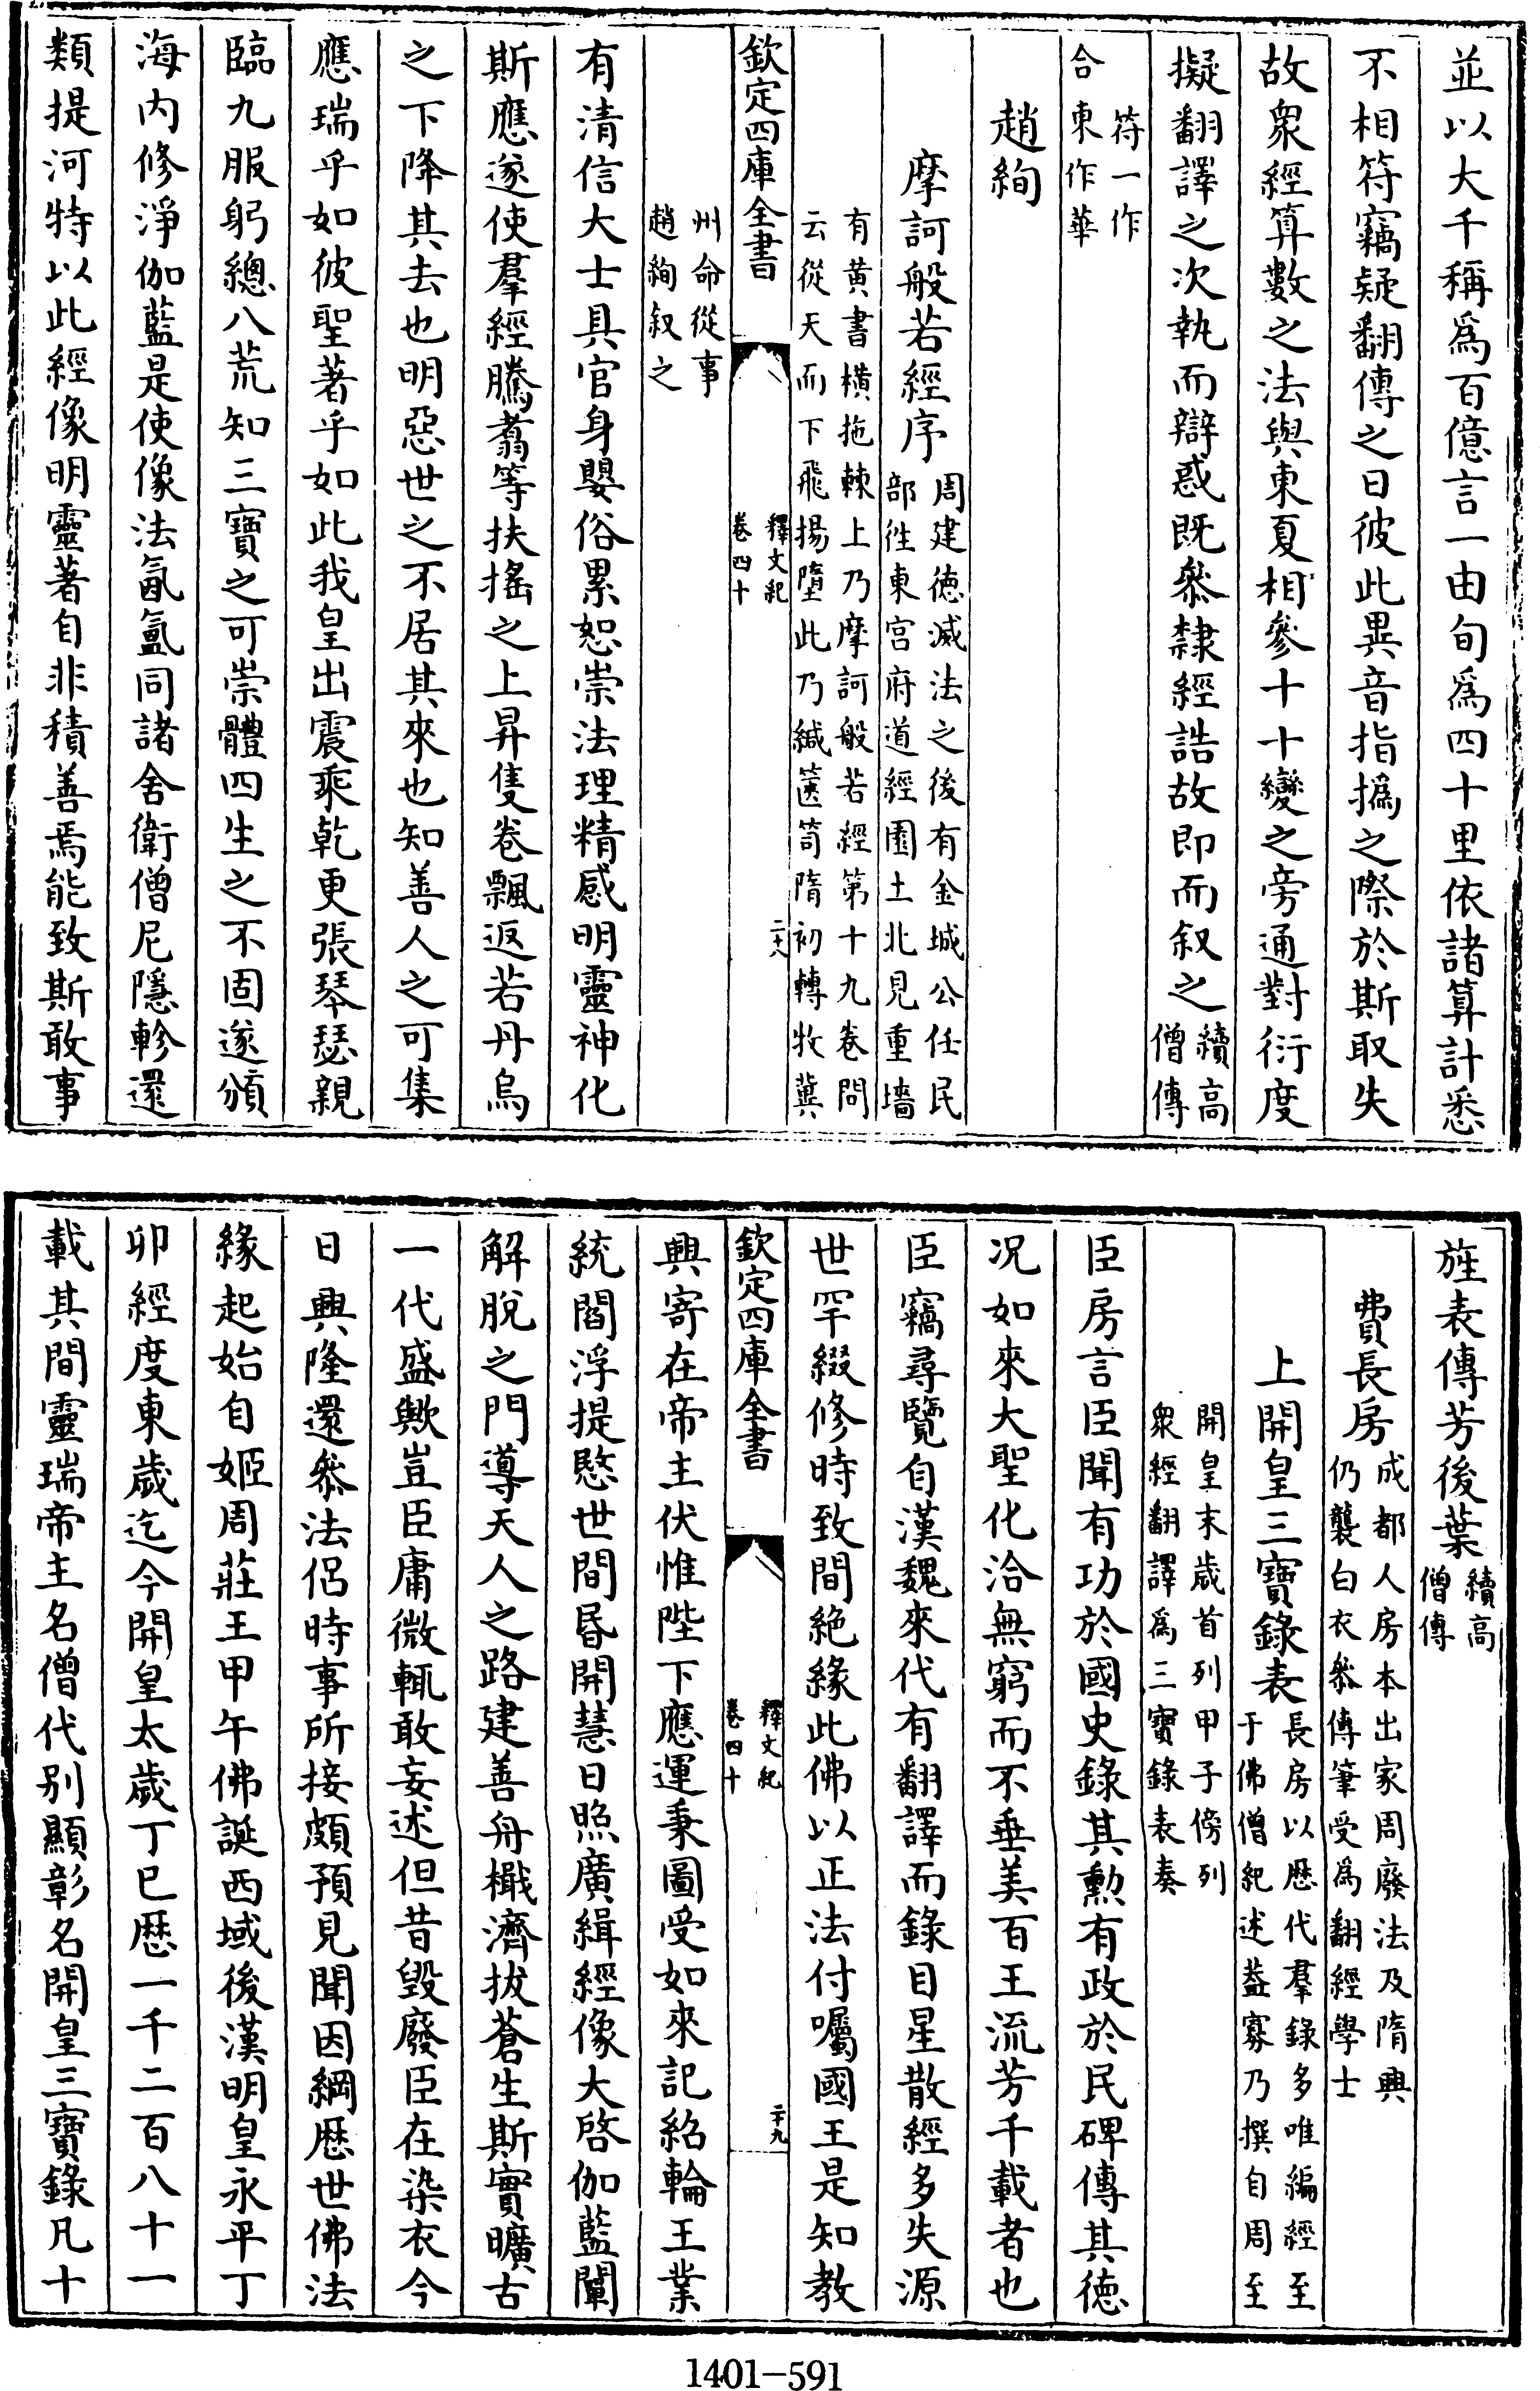 並以大千稱為百億言一由旬為四十里依諸算計悉
不相符竊疑翻傳之日彼此異音指撝之際於斯取失
故衆經算數之法與東夏相參十十變之旁通對衍度
擬翻譯之次執而辯惑既叅隸經誥故即而叙之續高僧傳
符一作合東作華
趙絢
摩訶般若經序周建德滅法之後有金城公任民部徃東宫府道經園土北見重墻
有黄書横拖棘上乃摩訶般若經第十九卷問云從天而下飛揚墮此乃緘篋笥隋初轉牧冀
欽定四庫全書
釋文紀卷四十
二十八
州命從事趙絢叙之
有清信大士具官身嬰俗累恕崇法理精感明靈神化
斯應遂使羣經騰翥等扶搖之上昇隻卷飄返若丹烏
之下降其去也明惡世之不居其來也知善人之可集
應瑞乎如彼聖著乎如此我皇出震乘乾更張琴瑟親
臨九服躬總八荒知三寶之可崇體四生之不固遂頒
海内修淨伽藍是使像法氤氲同諸舍衛僧尼隱軫還
類提河特以此經像明靈著自非積善焉能致斯敢事
旌表傳芳後葉續高僧傳
費長房成都人房本出家周廢法及隋興仍襲白衣叅傳筆受為翻經學士
上開皇三寶錄表長房以歴代羣錄多唯編經至于佛僧紀述葢寡乃撰自周至
開皇末歲首列甲子傍列衆經翻譯為三寶錄表奏
臣房言臣聞有功於國史錄其勲有政於民碑傳其德
况如來大聖化洽無窮而不垂美百王流芳千載者也
臣竊尋覽自漢魏來代有翻譯而錄目星散經多失源
世罕綴修時致間絶緣此佛以正法付囑國王是知教
欽定四庫全書
釋文紀卷四十
二十九
興寄在帝主伏惟陛下應運秉圖受如來記紹輪王業
統閻浮提愍世間昬開慧日照廣緝經像大啓伽藍闡
解脫之門導天人之路建善舟檝濟拔蒼生斯實曠古
一代盛歟豈臣庸微輒敢妄述但昔毁廢臣在染衣今
日興隆還叅法侣時事所接頗預見聞因綱歴世佛法
緣起始自姬周莊王甲午佛誕西域後漢明皇永平丁
卯經度東歲迄今開皇太歲丁巳歴一千二百八十一
載其間靈瑞帝主名僧代别顯彰名開皇三寶錄凡十
1401-591